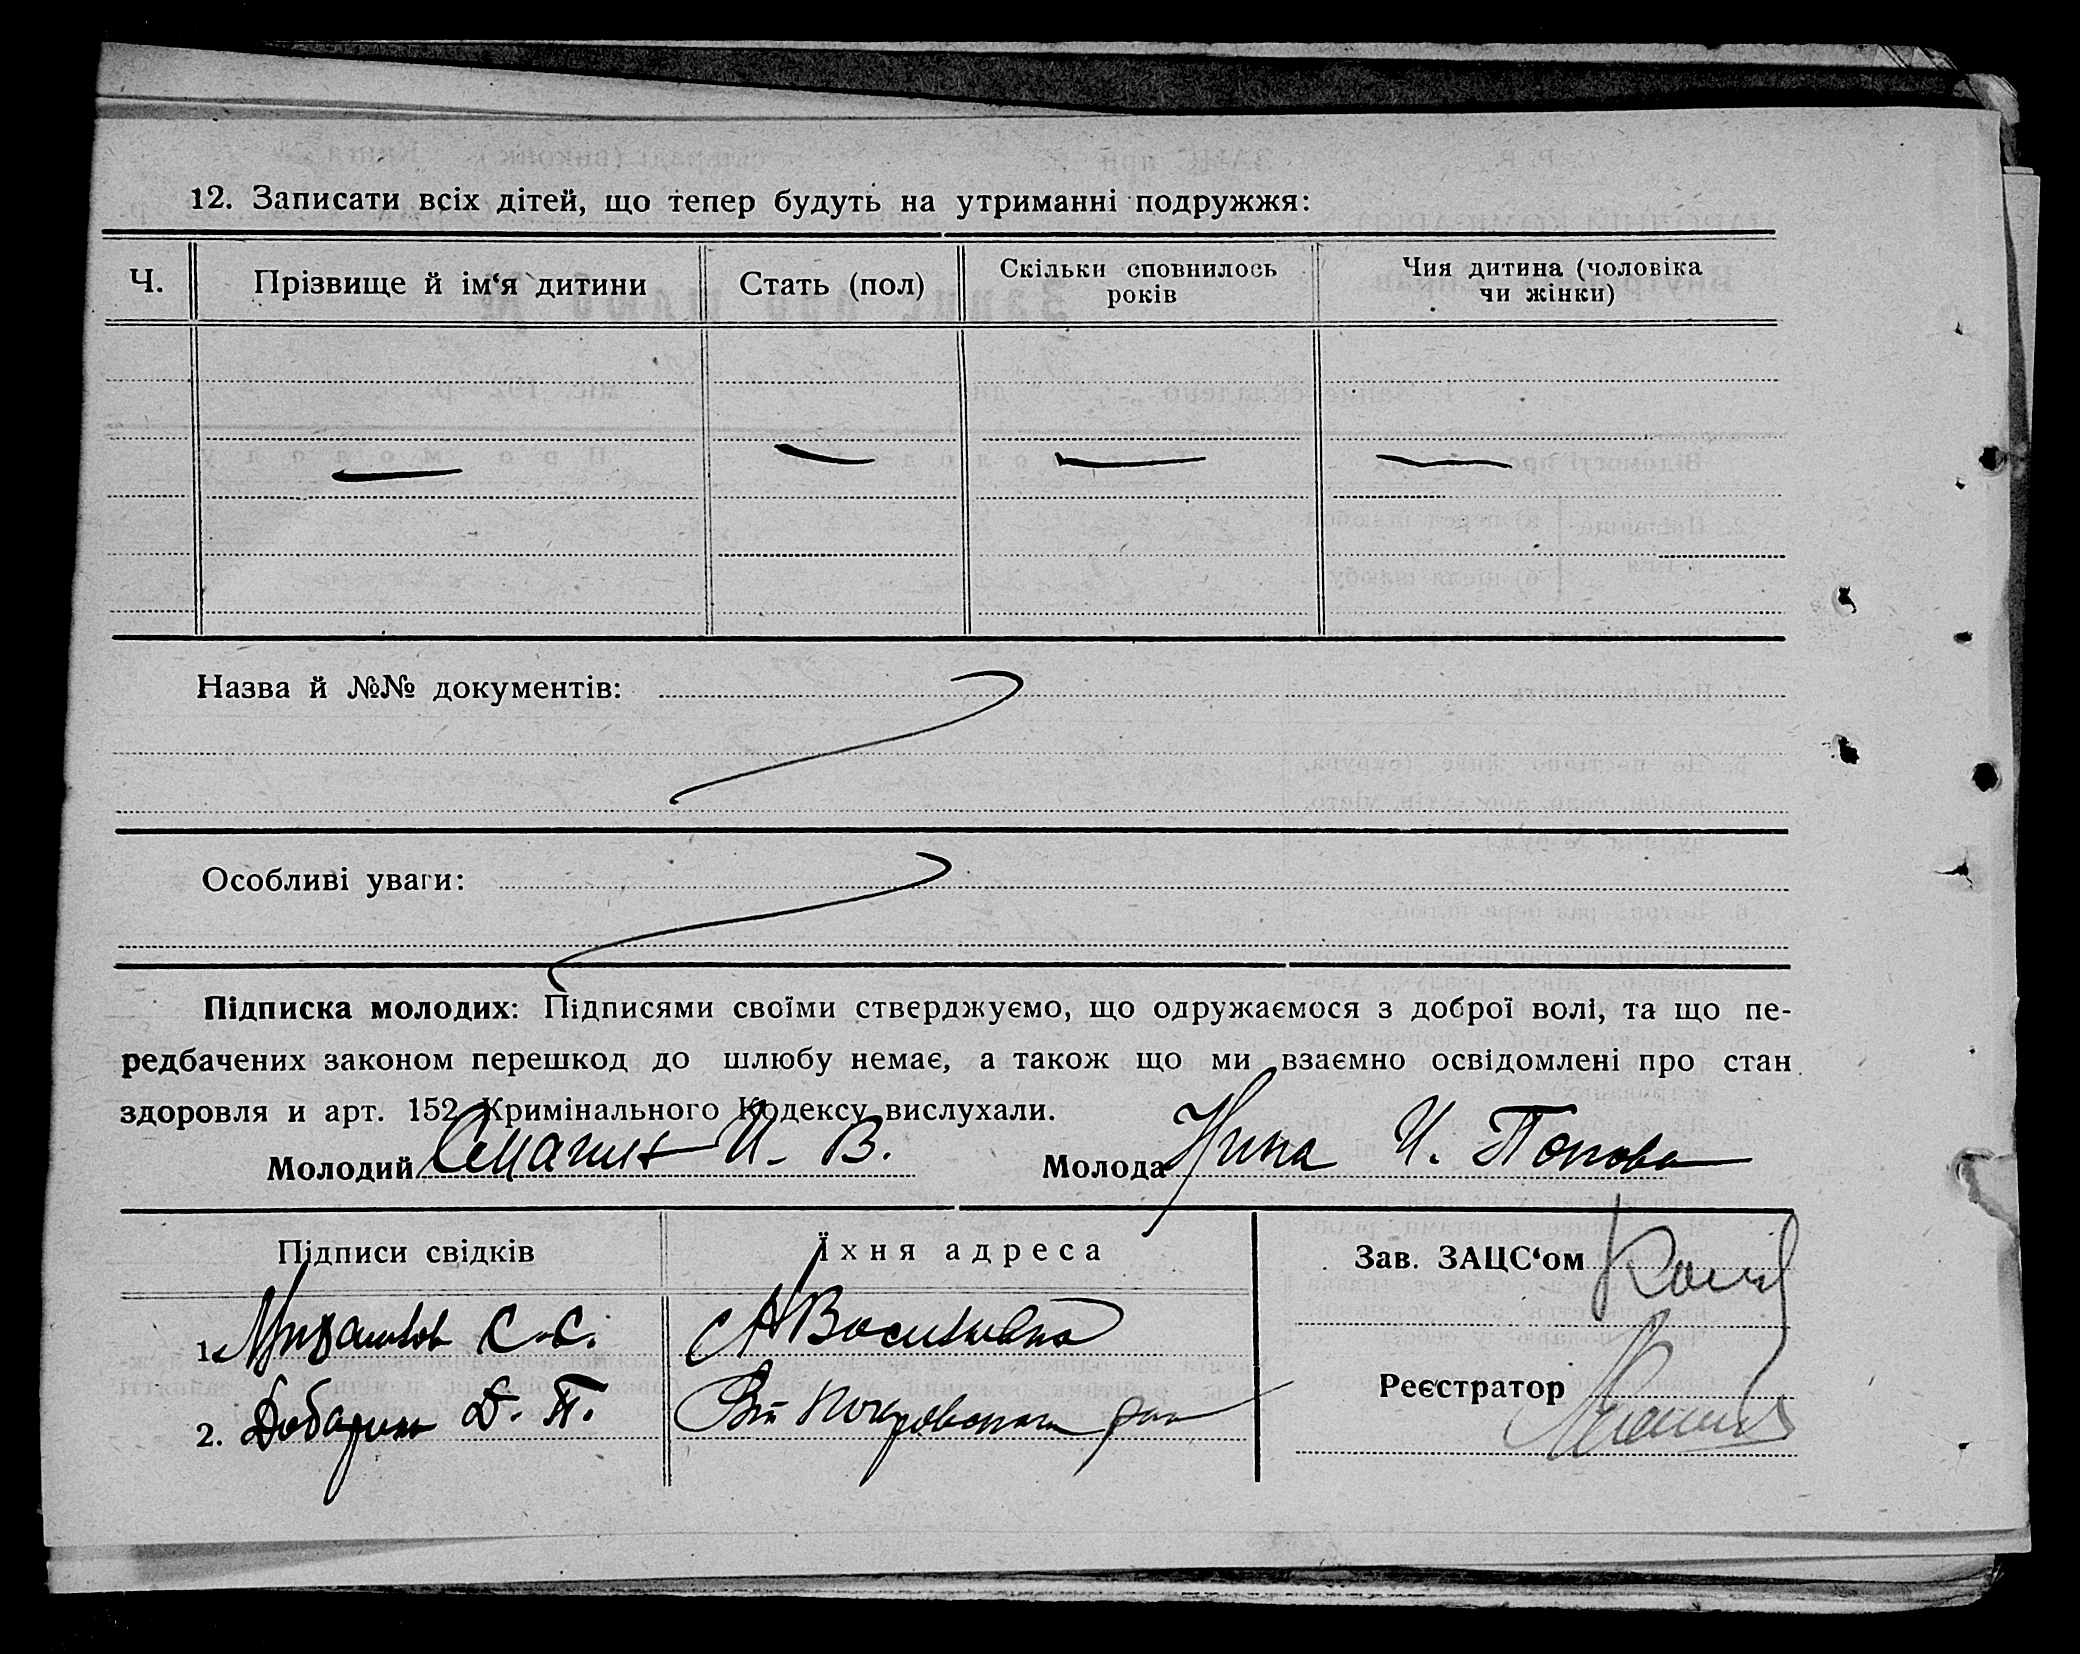 12. Записати всіх дітей, що тепер будуть на утриманні подружжя:
Ч. Прізвище й ім‘я дитини Стать (пол) Скільки сповнилось років Чия дитина (чоловіка чи жінки)
Назва й №№ документів:
Особливі уваги:
Підписка молодих: Підписями своїми стверджуємо, що одружаємося з доброї волі, та що пе-
редбачених законом перешкод до шлюбу немає, а також що ми взаємно освідомлені про стан
здоровля и арт. 152 Кримінального Кодексу вислухали.
Молодий И. В. Молода Нина И. Попова
Підписи свідків Їхня адреса Зав. ЗАЦС‘ом
1. С. С.
2. Д. П.
Реєстратор